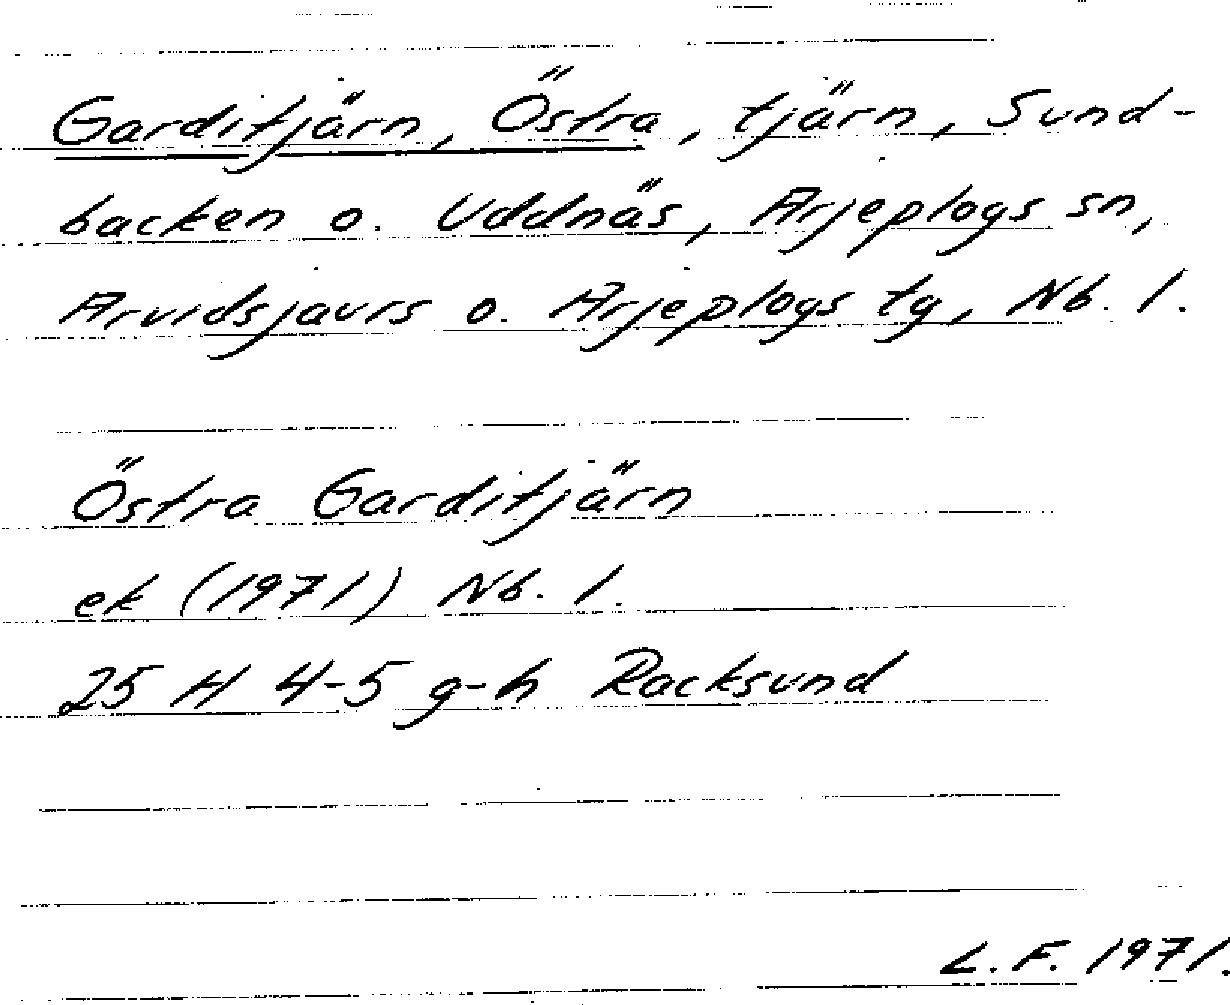 Garditjärn, Östra, tjärn, Sund-
backen o. Uddnäs, Arjeplogs sn,
Arvidsjaurs o. Arjeplogs tg, Nb. l.
Östra Garditjärn
ek (1971) Nb. l.
25 H 4-5 g-h Racksund
L.F. 1971.